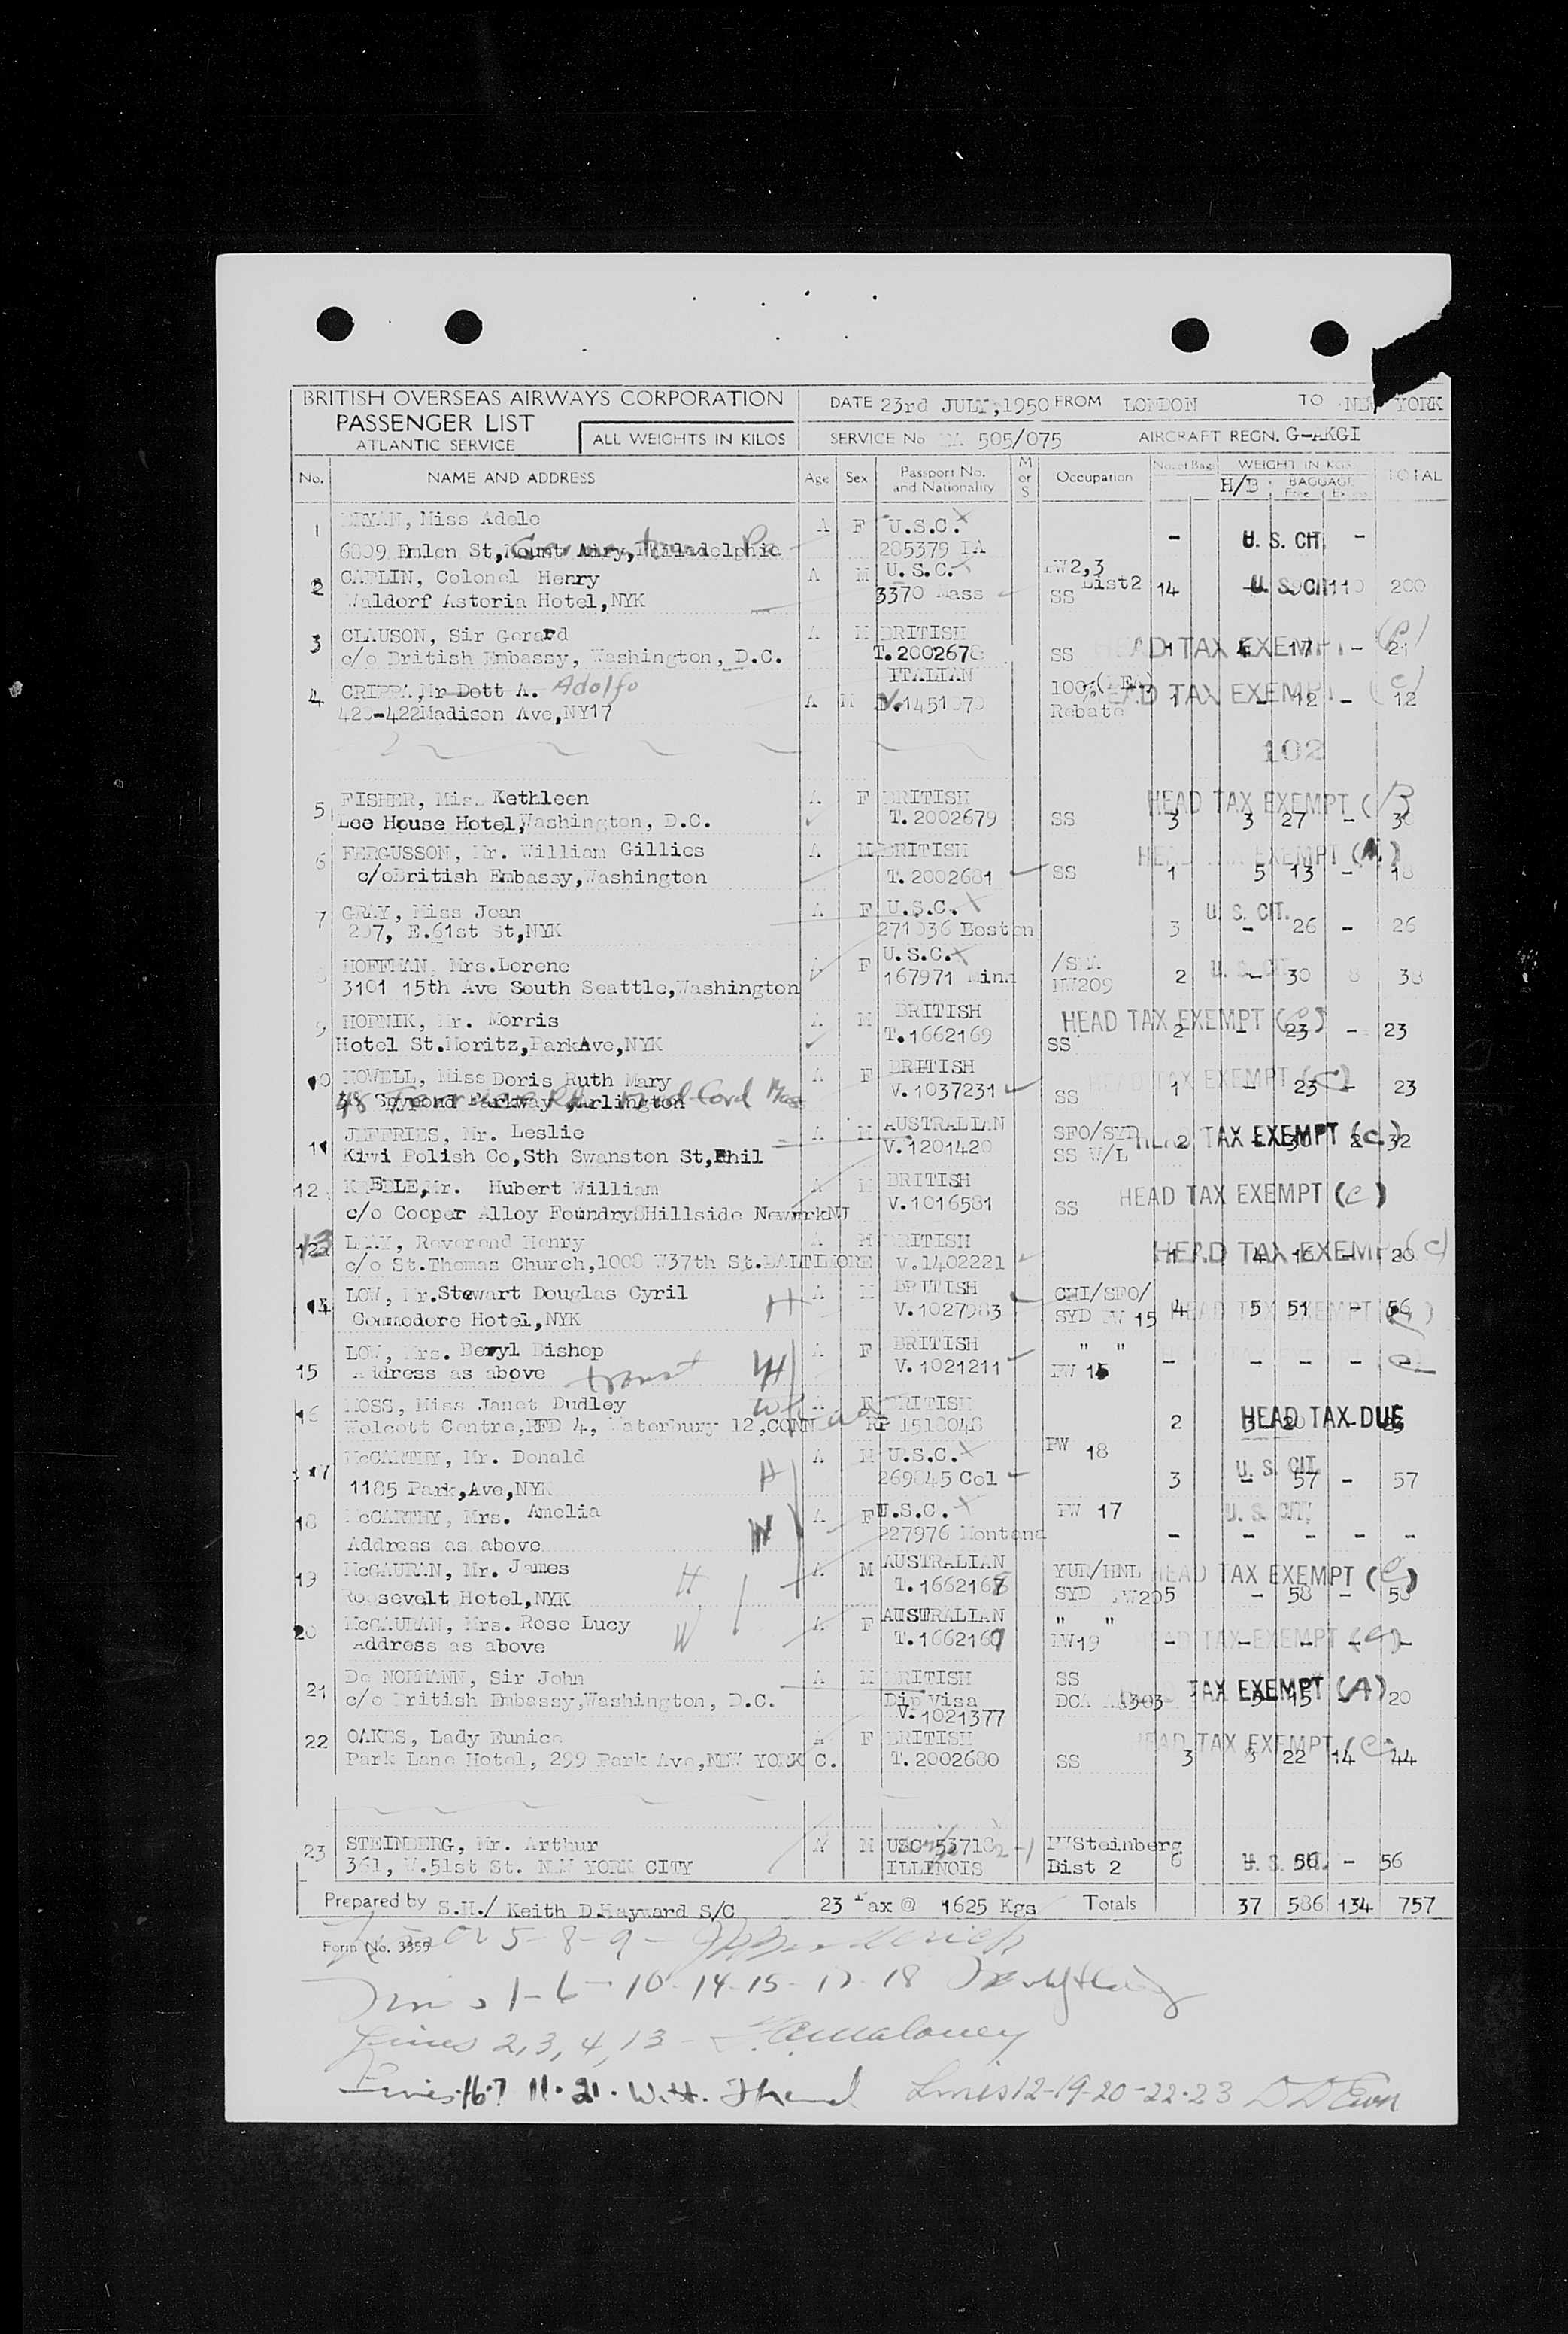 BRITISH OVERSEAS AIRWAYS CORPORATION
PASSENGER LIST
ATLANTIC SERVICE
ALL WEIGHTS IN KILOS
DATE 23rd JULY, 1950 FROM LONDON TO NEW YORK
SERVICE No 505/075 AIRCRAFT REGN. G-AKGI
No. NAME AND ADDRESS Age Sex Passport No. and Nationality M or S Occupation No. of Bags WEIGHT IN KGS. H/B BAGGAGE Free Excess TOTAL
1 Miss Adele A F U.S.C. - U. S. CIT. -
St, Mount Airy, Philadelphia 205379 PA
2 CARLIN, Colonel Henry A M U.S.C. PW2,3
Waldorf Astoria Hotel,NYK 3370 Mass SS List2 14 U. S. CIT 110 200
3 CLAUSON, Sir Gerard A M BRITISH
c/o British Embassy, Washington, D.C. T.2002678 SS HEAD TAX EXEMPT 1 4 17 - 21
4 CRIPPA,Mr Dott A. Adolfo ITALIAN
420-422Madison Ave,NY17 A M V.1451070 100% Rebate HEAD TAX EXEMPT 1 - 12 - 12
102
5 FISHER, Miss Kathleen A F BRITISH HEAD TAX EXEMPT (B)
Lee House Hotel,Washington, D.C. T.2002679 SS 3 3 27 - 30
6 FERGUSSON, Mr. William Gillies A M BRITISH HEAD TAX EXEMPT (A)
c/oBritish Embassy,Washington T.2002681 SS 1 5 13 - 18
7 GRAY, Miss Joan A F U.S.C. U. S. CIT.
207, E.61st St,NYK 271036 Boston 3 - 26 - 26
8 HOFFMAN, Mrs.Lorene F U.S.C.
3101 15th Ave South Seattle,Washington 167971 Minn PW209 2 U. S. CIT - 30 8 38
9 HOPNIK, Mr. Morris A M BRITISH HEAD TAX EXEMPT
Hotel St.Moritz,ParkAve,NYK T.1662169 SS 2 - 23 - 23
10 HOWELL, Miss Doris Ruth Mary A F BRITISH HEAD TAX EXEMPT (C)
Parkway Arlington V.1037231 SS 1 - 23 - 23
11 JEFFRIES, Mr. Leslie A M AUSTRALIAN SFO/SYD HEAD TAX EXEMPT (C)
Kiwi Polish Co,Sth Swanston St,Phil V.1201420 SS W/L 2 - 30 2 32
12 KREDLE,Mr. Hubert William A M BRITISH HEAD TAX EXEMPT (C)
c/o Cooper Alloy Foundry8Hillside NewarkNJ V.1016581 SS
13 Reverend Henry A M BRITISH HEAD TAX EXEMPT (C)
c/o St.Thomas Church,1008 W37th St.BALTIMORE V.1402221 1 4 16 - 20
14 LOW, Mr.Stewart Douglas Cyril H A M BRITISH CHI/SFO/
Commodore Hotel,NYK V.1027983 SYD PW 15 4 5 51 - 56 HEAD TAX EXEMPT
15 LOW, Mrs. Beryl Bishop A F BRITISH " "
Address as above W V.1021211 PW 15 - - - - -
16 MOSS, Miss Janet Dudley A F BRITISH
Wolcott Centre,RFD 4, Waterbury 12,CONN RP 1518048 2 HEAD TAX DUE
17 McCARTHY, Mr. Donald A M U.S.C. PW 18
1185 Park,Ave,NYK H 269845 Col 3 U. S. CIT. - 57 - 57
18 McCARTHY, Mrs. Amelia A F U.S.C. PW 17 U. S. CIT.
Address as above W 227976 Montana - - - - -
19 McGAURAN, Mr. James H A M AUSTRALIAN YUR/HNL HEAD TAX EXEMPT (C)
Roosevelt Hotel,NYK T.1662168 SYD PW20 5 - 58 - 58
20 McGAURAN, Mrs. Rose Lucy W A F AUSTRALIAN " "
Address as above T.1662167 PW19 HEAD TAX EXEMPT - - - - -
21 De NORMANN, Sir John A M BRITISH SS
c/o British Embassy,Washington, D.C. Dip Visa DCA TAX EXEMPT (A) 5 15 20
V.1021377
22 OAKES, Lady Eunice A F BRITISH HEAD TAX EXEMPT
Park Lane Hotel, 299 Park Ave,NEW YORK C. T.2002680 SS 3 8 22 14 44
23 STEINBERG, Mr. Arthur A M USC 53718 Steinberg
361, W.51st St. NEW YORK CITY ILLINOIS List 2 6 U. S. CIT. 56 - 56
Prepared by S.H./ Keith D.Hayward S/C 23 Pax @ 1625 Kgs Totals 37 586 134 757
Form No. 3359
5-8-9-
1-6-10-14-15-17-18
Lines 2,3,4,13 - Maloney
Lines 16.7 11.21. W.H.
Lines 12-19-20-22-23